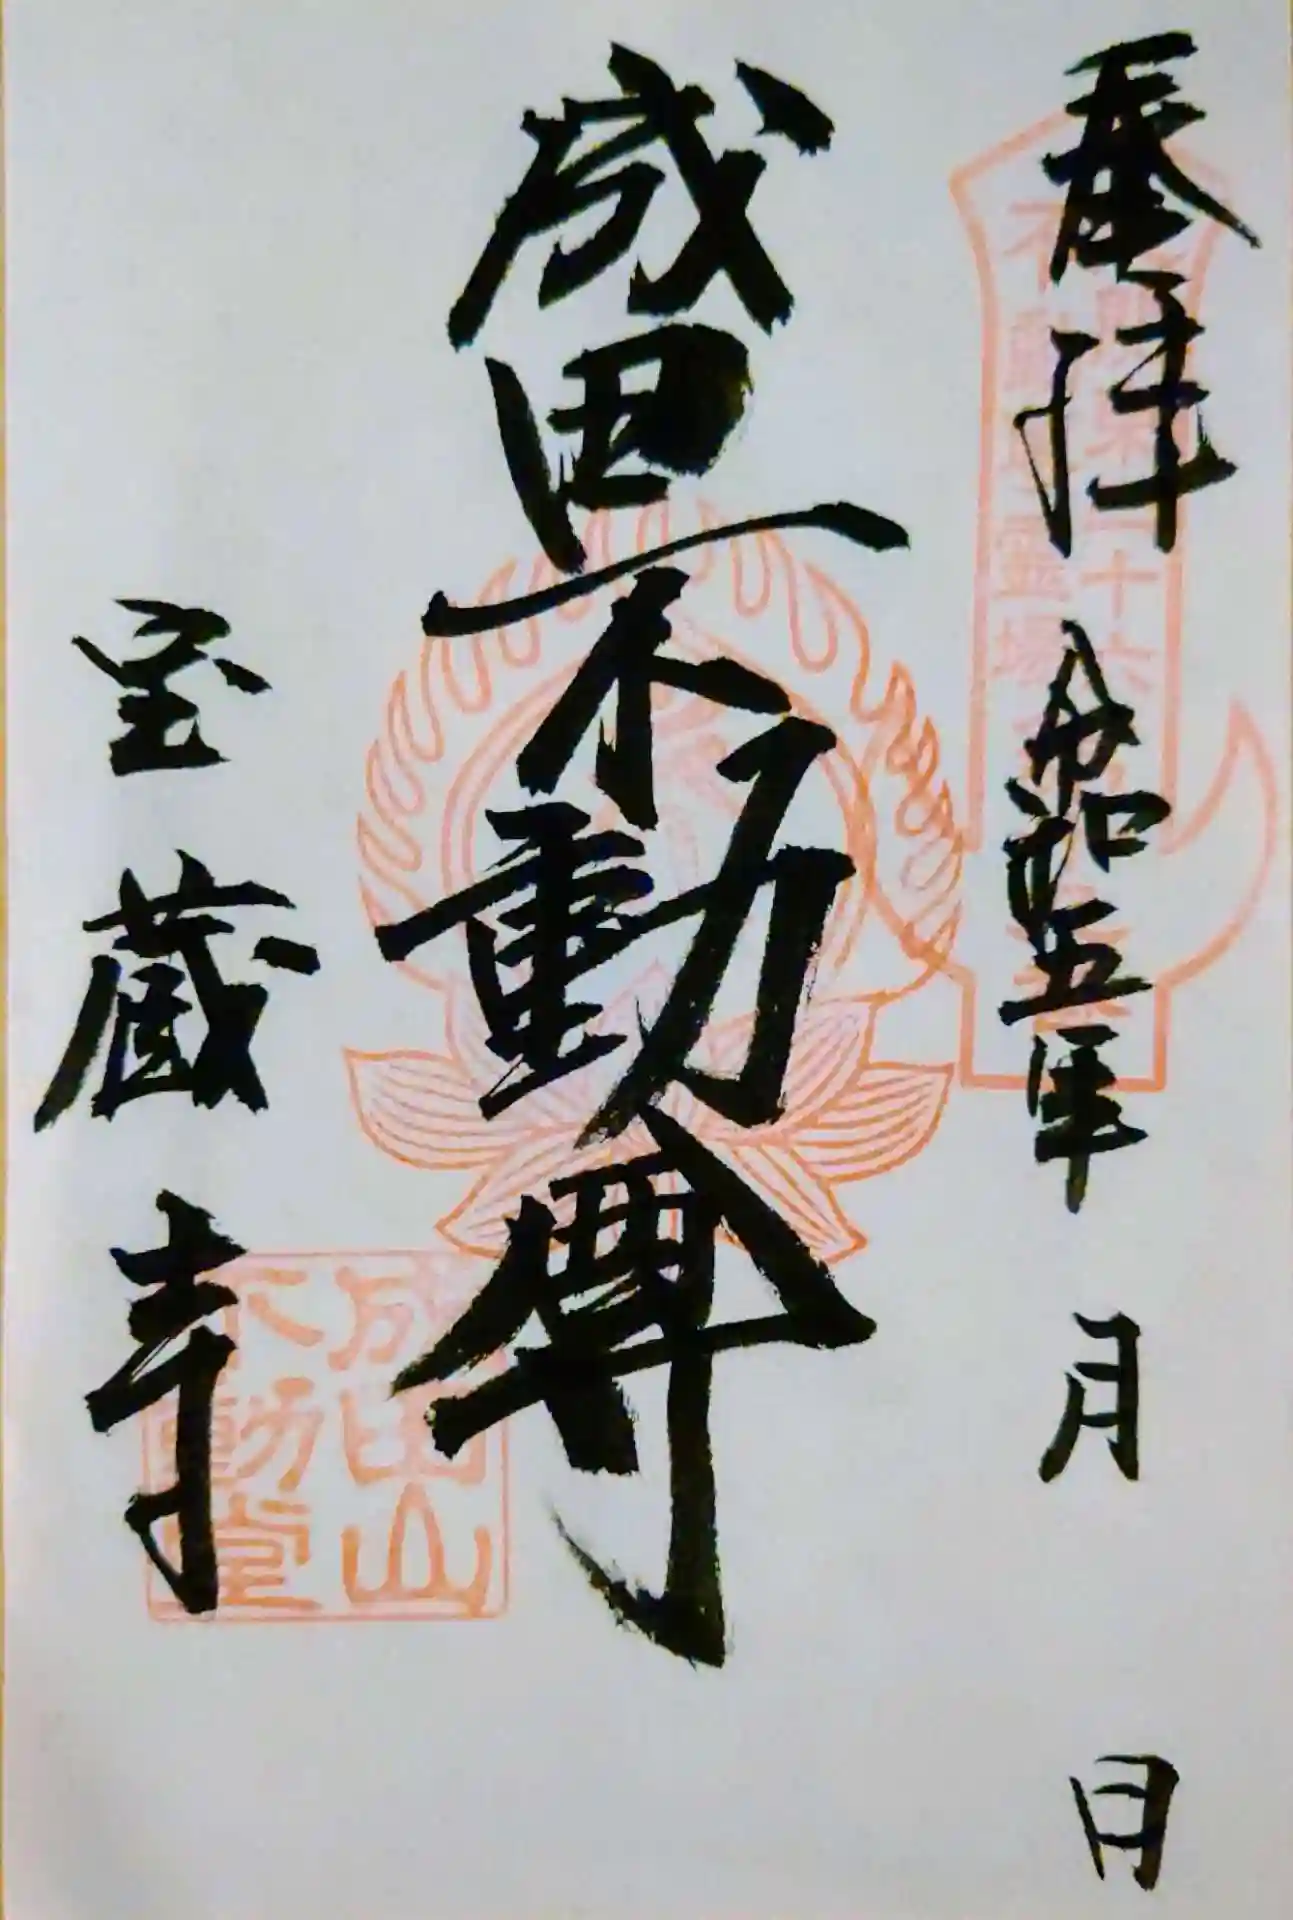 奉拝 令和五年 月 日
十六
霊場
成田不動尊
宝蔵寺
成田山
不動堂